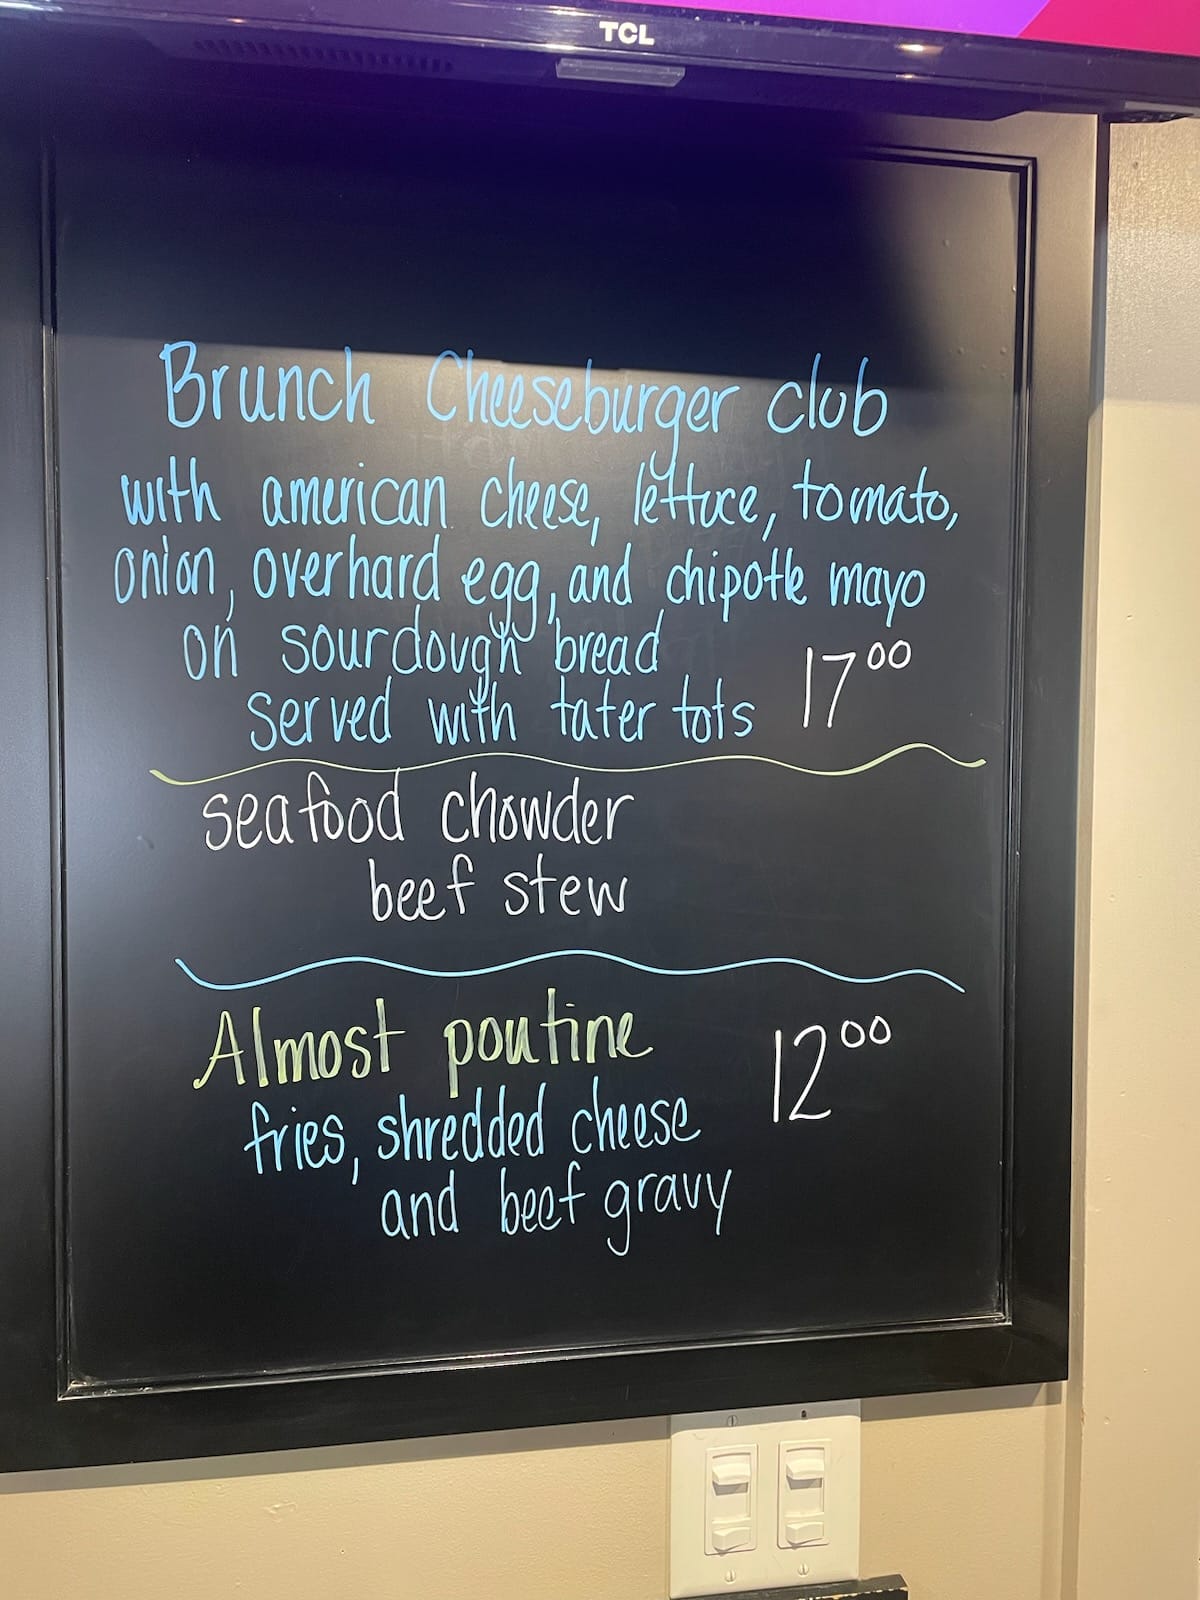 TCL
Brunch Cheeseburger club
with american cheese, lettuce, tomato,
onion, overhard egg, and chipotle mayo
on sourdough bread
served with tater tots 17⁰⁰
seafood chowder
beef stew
Almost poutine 12⁰⁰
fries, shredded cheese
and beef gravy